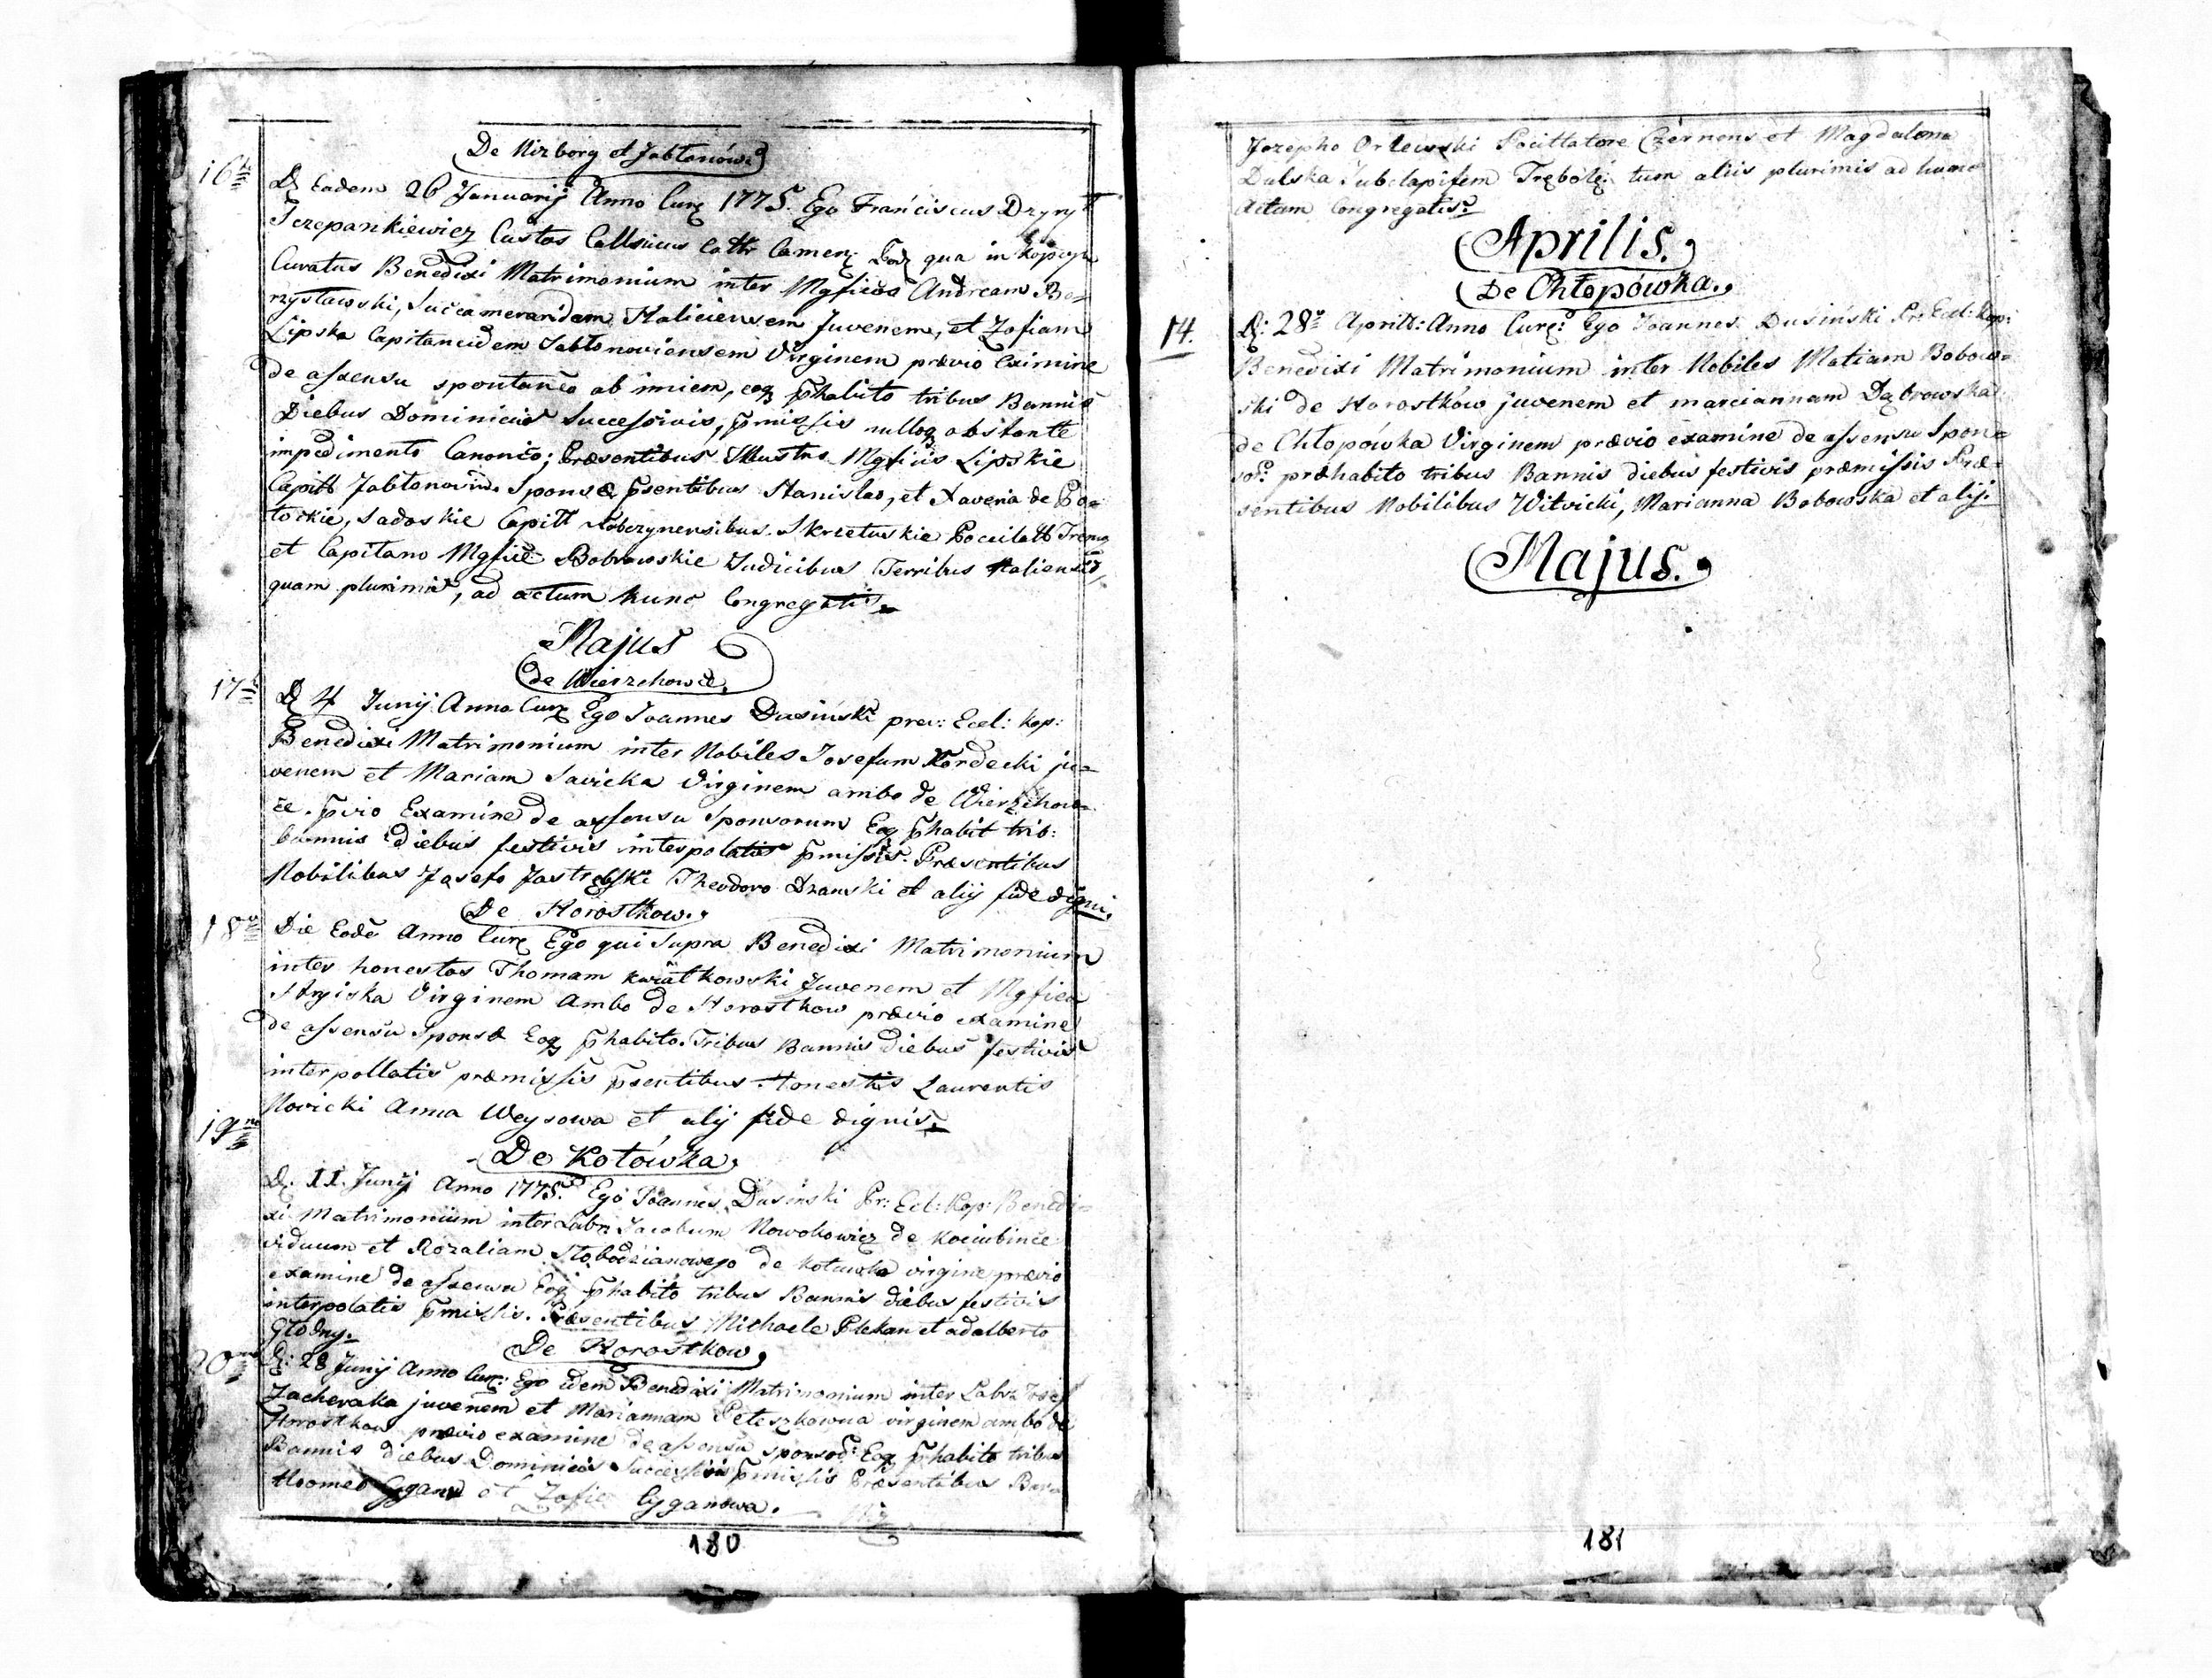 De Nizborg et Jabłonówe
16to
D. Eadem 26 Januarij Anno Cure 1775. Ego Franciscus
Szczepankiewicz Custos Cath Camen qua in Kopyn
Curatus Benedixi Matrimonium inter Mgficos Andream Bo=
rzysławski, Succamerandam Haliciensem Juvenem, et Zofiam
Lipska Capitaneidem Jabłonoviensem Virginem prævio Eximine
de assensu spontaneo ab, eoq phabito tribus Bannis
Diebus Dominicis Successivis, pmissis nulloq obstante
impedimento Canonico; Præsentibus Illustris Mgficis Lipskie
Capitt Jabłonovin. Sponsæ psentibus Stanislao, et Xaveria de Po=
tockie, Sadoskie Capitt. Skrzetuskie
et Capitano Mgfice Bobrowskie Judicibus Terribus
quam plurimis, ad actum hunc Congregatis
Majus
de Wierzchowce.
17
D 4 Junij Anno Cure Ego Joannes Dusiński prev: Ecel: Kop:
Benedixi Matrimonium inter Nobiles Josefum Kordecki ju=
venem et Mariam Savicka Virginem ambo de Wierzchow=
ce. pvio Examine de assensu Sponsorum Eoq phabit trib:
bannis diebus festivis interpolatis pmissis. Præsentibus
Nobilibus Josefo Jastrębski Theodoro et alij fide digni.
De Horostkow.
18
Die Eode Anno Cure Ego qui Supra Benedixi Matrimonium
inter honestos Thomam Kwiatkowski Juvenem et Mgfica
Virginem Ambo de Horostkow prævio examine
de assensu Sponsæ Eoq phabito. Tribus Bannis diebus festivis
interpollatis præmissis psentibus Honestis Laurentis
Novicki Anna Weysowa et alij fide dignis.
19no
De Kotówka.
D. 11. Junij Anno 1775. Ego Joannes Dusiński Pr: Ecl: Kop: Benedi=
xi Matrimonium inter Labr. Jacobum Nowokowicz de Kociubince
viduum et Rozaliam Słobodzianowego de Kotuwka virgine prævio
examine de assensu Eoq phabito tribus Bannis diebus festivis
interpolatis pmissis. Præsentibus Michaele Plekan et adalberto
Głodny.
De Horostkow.
20
D: 28 Junij Anno Cure: Ego idem Benedixi Matrimonium inter Labr Josef
Zacheraka juvenem et Mariannam Peteszkowna virginem ambo de
Horostkow prævio examine de assensu sponsor: Eoq phabito tribus
Bannis diebus Dominicis Successivis pmissis Præsentibus Bar
tłomeo Cygano et Zofia Cyganowa.
180
Jozepho Orlewski Pocillatore Czernens et Magdalena
Dulska Subdapifem Trębolę: tum aliis plurimis ad hunc
Actum Congregatis.
Aprilis.
De Chłopówka.
14.
D: 28 Aprill: Anno Cure: Ego Joannes Dusiński Pr: Ecel: Kop:
Benedixi Matrimonium inter Nobiles Matiam Bobow=
ski de Horostków juvenem et marciannam Dąbrowska
de Chłopówka Virginem prævio examine de assensu Spon=
so: præhabito tribus Bannis diebus festivis præmissis Præ=
sentibus Nobilibus Witvicki, Marianna Bobowska et alij.
Majus.
181